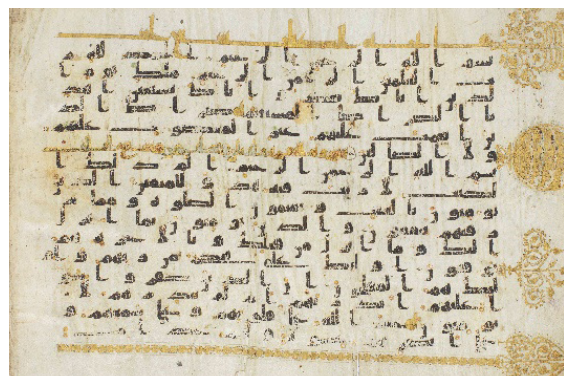 بسم الله الرحمن الرحيم الحمد لله ر
ب العلمين الرحمن الرحيم ملك يوم ا
لدين اياك نعبد و اياك نستعين اهد
نا الصرط المستقيم صرط الذ
ين انعمت عليهم غير المغضوب عليهم
و لا الضالين
بسم الله الرحمن الرحيم الم ذلك ا
لكتب لا ريب فيه هدى للمتقين الذين
يومنون بالغيب و يقيمون الصلوه و مما ر
زقنهم ينفقون و الذين يومنون بما انزل
اليك و ما انزل من قبلك و بالاخره هم
يوقنون اولئك على هدى من ربهم و اولئك
هم المفلحون ان الذين كفروا سوا
عليهم انذرتهم ام لم تنذرهم لا
يومنون ختم الله على قلوبهم و على سمعهم و